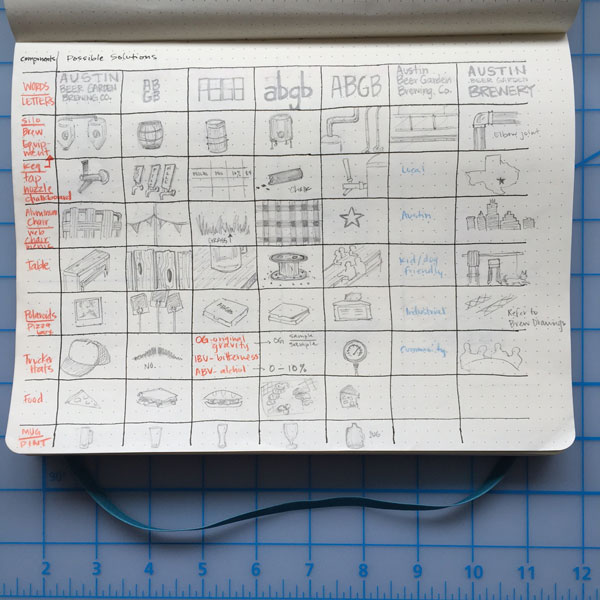 components Possible Solutions
WORDS
LETTERS
AUSTIN
BEER GARDEN
BREWING CO.
AB
GB
abgb
ABGB
Austin
Beer Garden
Brewing, Co.
AUSTIN
BEER GARDEN
BREWERY
Silo
Brew
Equip-
ment
Elbow joint
Keg
tap
nuzzle
chalkboard
chalk
Local
Aluminum
Chair
web
Chair
GRASS
Austin
Table
Kid/dog
friendly
Polaroids
Pizza
box
Industrial
Refer to
Brew Drawings
Trucker
Hats
NO.
OG-original
gravity
IBU-bitterness
ABV-alchol
OG sample
sample
0-10%
Community
Food
MUG
PINT
JUG
90°
2 3 4 5 6 7 8 9 10 11 12